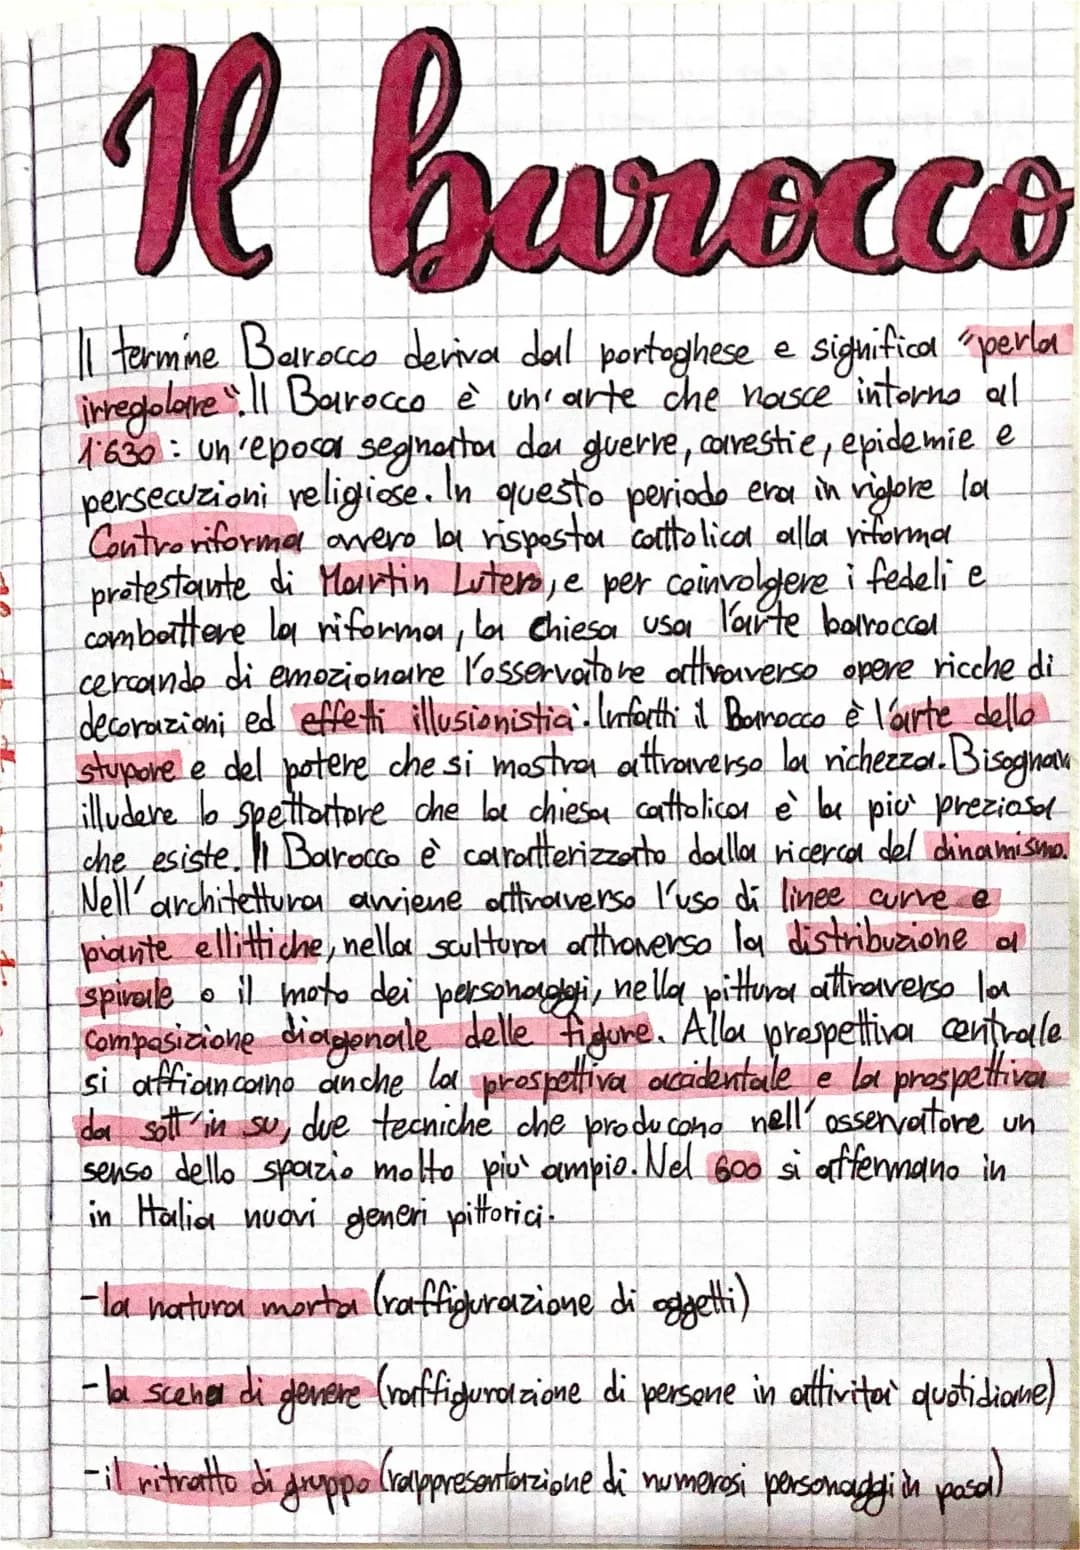 Il barocco
Il termine Barocco deriva dal portoghese e significa "perla
irregolare". Il Barocco è un'arte che nasce intorno al
1'630: un'epoca segnata da guerre, carestie, epidemie e
persecuzioni religiose. In questo periodo era in vigore la
Controriforma ovvero la risposta cattolica alla riforma
protestante di Martin Lutero, e per coinvolgere i fedeli e
combattere la riforma, la Chiesa usa l'arte barocca
cercando di emozionare l'osservatore attraverso opere ricche di
decorazioni ed effetti illusionistici. Infatti il Barocco è l'arte dello
stupore e del potere che si mostra attraverso la richezza. Bisognav
illudere lo spettatore che la chiesa cattolica è la più preziosa
che esiste. Il Barocco è caratterizzato dalla ricerca del dinamismo.
Nell'architettura avviene attraverso l'uso di linee curve e
piante ellittiche, nella scultura attraverso la distribuzione a
spirale o il moto dei personaggi, nella pittura attraverso la
composizione diagonale delle figure. Alla prospettiva centrale
si affiancano anche la prospettiva accidentale e la prospettiva
da sott'in su, due tecniche che producono nell'osservatore un
senso dello spazio molto più ampio. Nel 600 si affermano in
in Italia nuovi generi pittorici.
-la natura morta (raffigurazione di oggetti)
-la scena di genere (raffigurazione di persone in attività quotidiane)
-il ritratto di gruppo (rappresentazione di numerosi personaggi in posa)